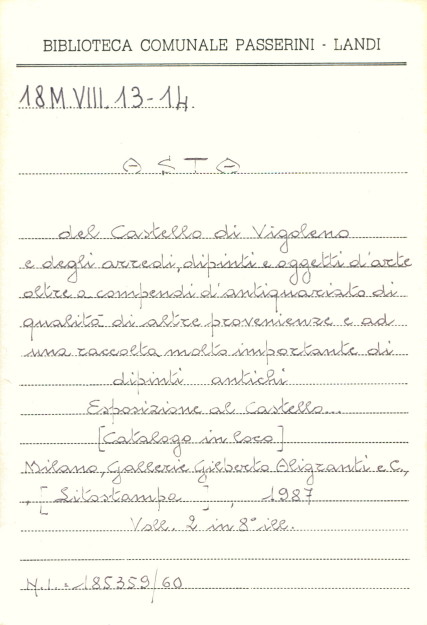 BIBLIOTECA COMUNALE PASSERINI - LANDI
18M.VIII.13-14.
ASTA
del Castello di Vigoleno
e degli arredi, dipinti e oggetti d'arte
oltre a compendi d'antiquariato di
qualità di altre provenienze e ad
una raccolta molto importante di
dipinti antichi
Esposizione al Castello...
[Catalogo in loco]
Milano, Gallerie Gilberto Algranti e C.,
, [Litostampa], 1987
Voll. 2 in 8° ill.
N.I.: 185359/60